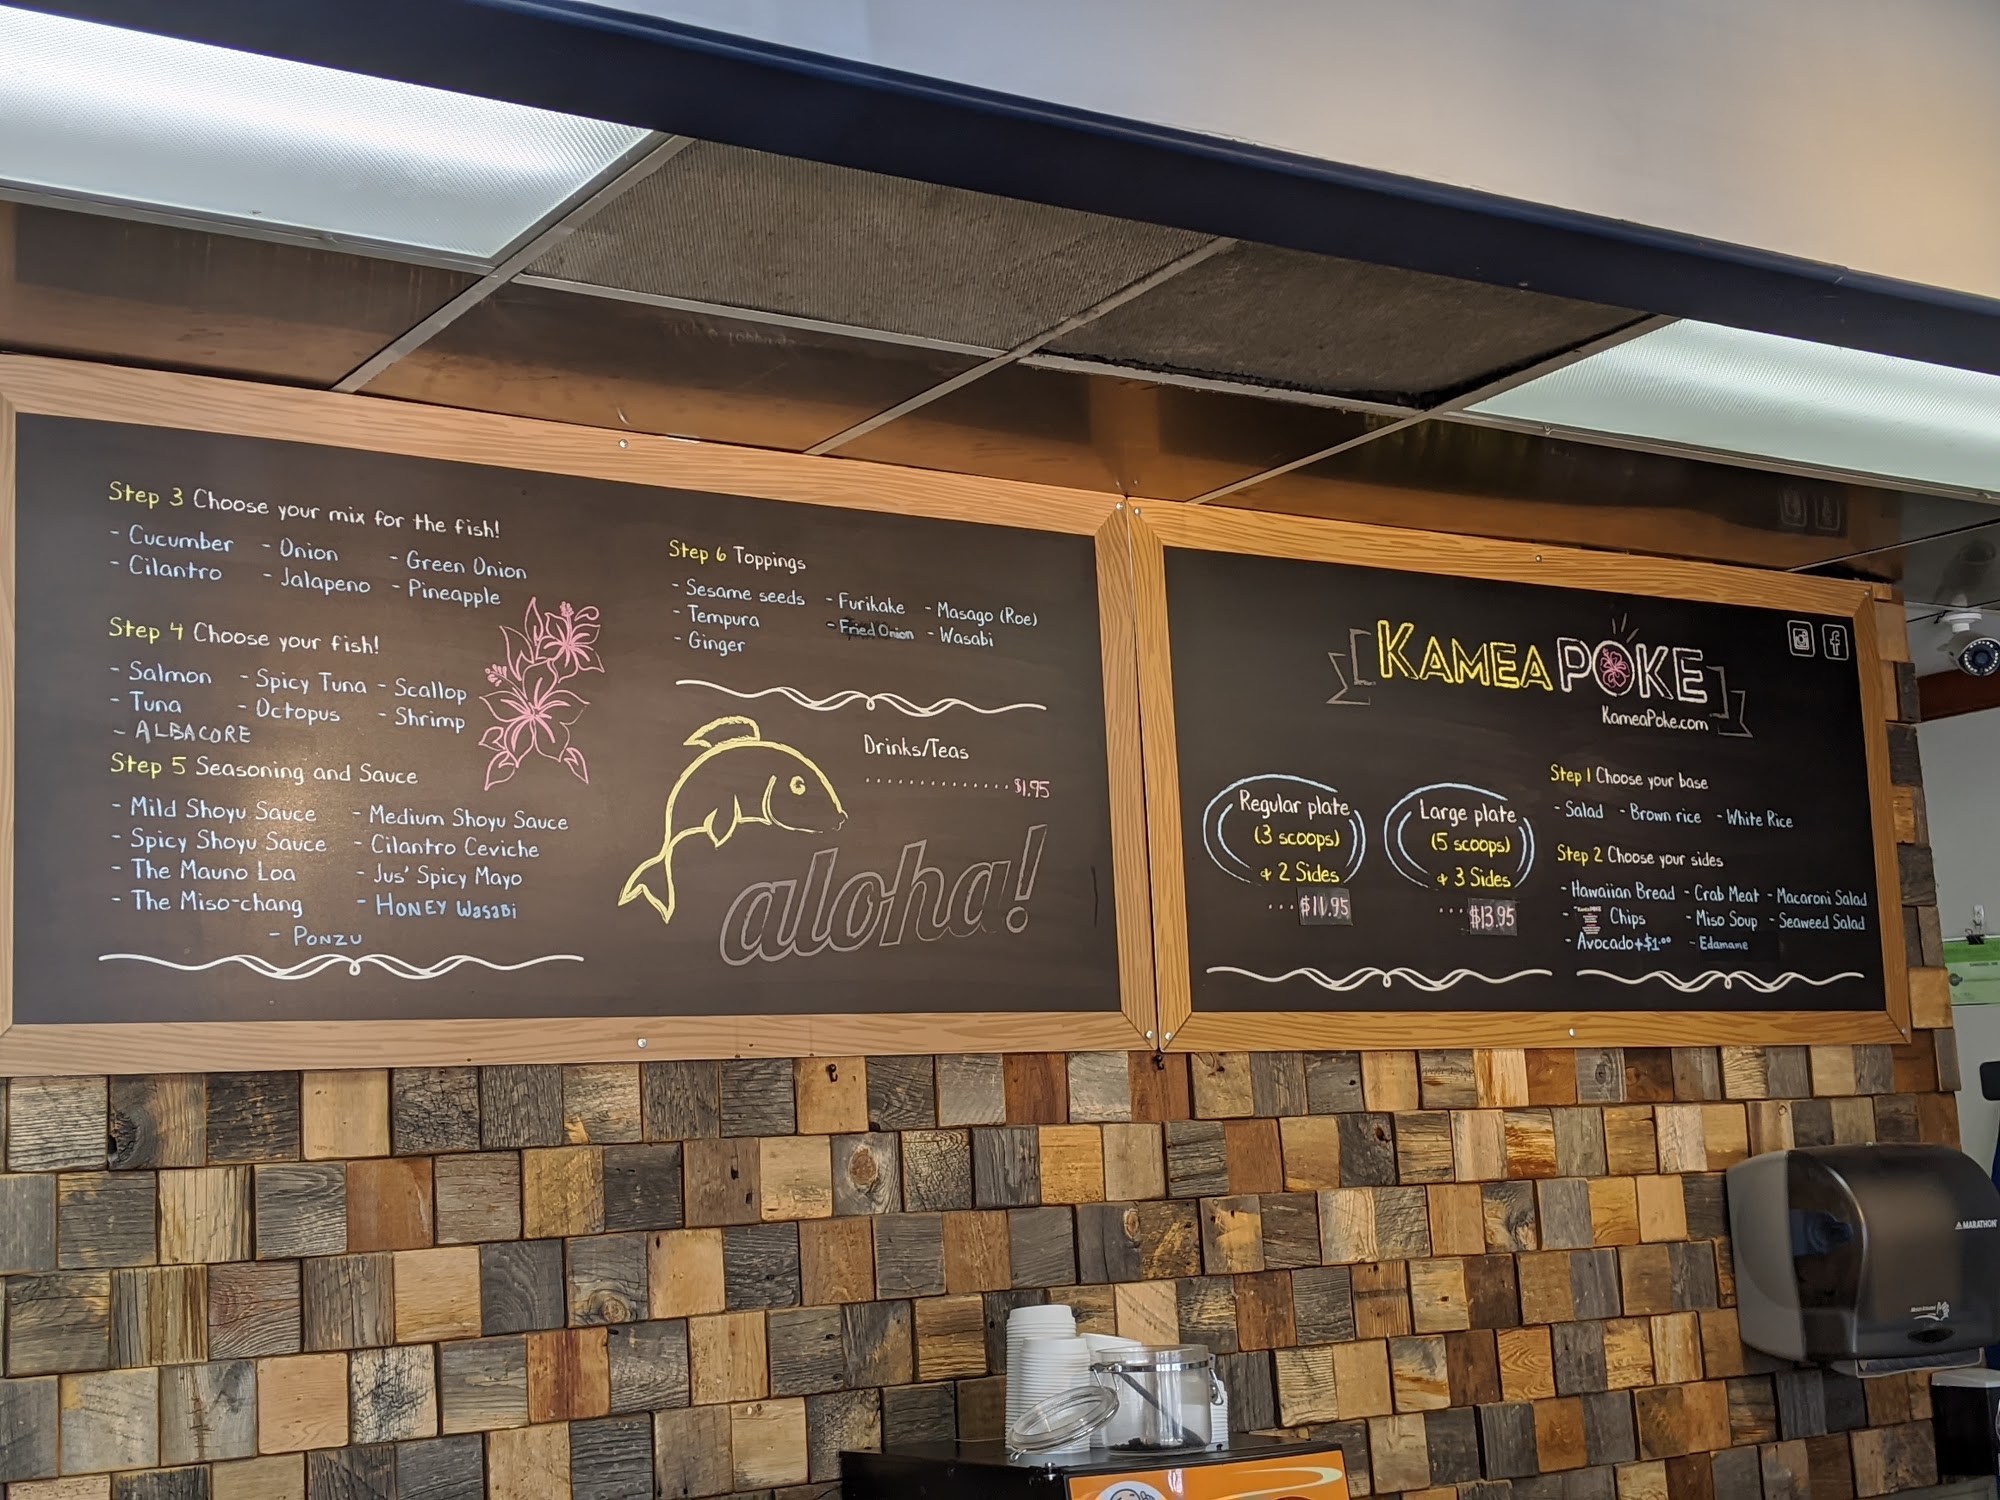 Step 3 Choose your mix for the fish!
- Cucumber - Onion - Green Onion
- Cilantro - Jalapeno - Pineapple
Step 4 Choose your fish!
- Salmon - Spicy Tuna - Scallop
- Tuna - Octopus - Shrimp
- ALBACORE
Step 5 Seasoning and Sauce
- Mild Shoyu Sauce - Medium Shoyu Sauce
- Spicy Shoyu Sauce - Cilantro Ceviche
- The Mauno Loa - Jus' Spicy Mayo
- The Miso-chang - HONEY WasaBi
- PONZU
Step 6 Toppings
- Sesame seeds - Furikake - Masago (Roe)
- Tempura - Fried Onion - Wasabi
- Ginger
Drinks/Teas
...............$1.95
aloha!
KAMEA POKE
KameaPoke.com
Regular plate
(3 scoops)
+ 2 Sides
...$11.95
Large plate
(5 scoops)
+ 3 Sides
...$13.95
Step 1 Choose your base
- Salad - Brown rice - White Rice
Step 2 Choose your sides
- Hawaiian Bread - Crab Meat - Macaroni Salad
- Chips - Miso Soup - Seaweed Salad
- Avocado+$1.00 - Edamame
MARATHON